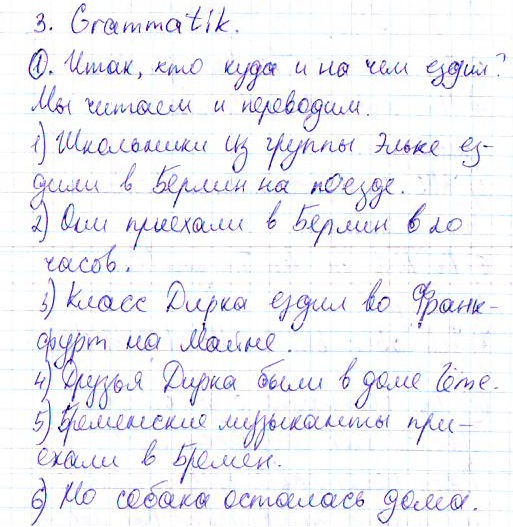 3. Grammatik.
①. Итак, кто куда и на чем ездил?
Мы читаем и переводим.
1) Школьники из группы Эльке ез-
дили в Берлин на поезде.
2) Они приехали в Берлин в 20
часов.
3) Класс Дирка ездил во Франк-
фурт на Майне.
4) Друзья Дирка были в доме Гёте.
5) Бременские музыканты при-
ехали в Бремен.
6) Но собака осталась дома.